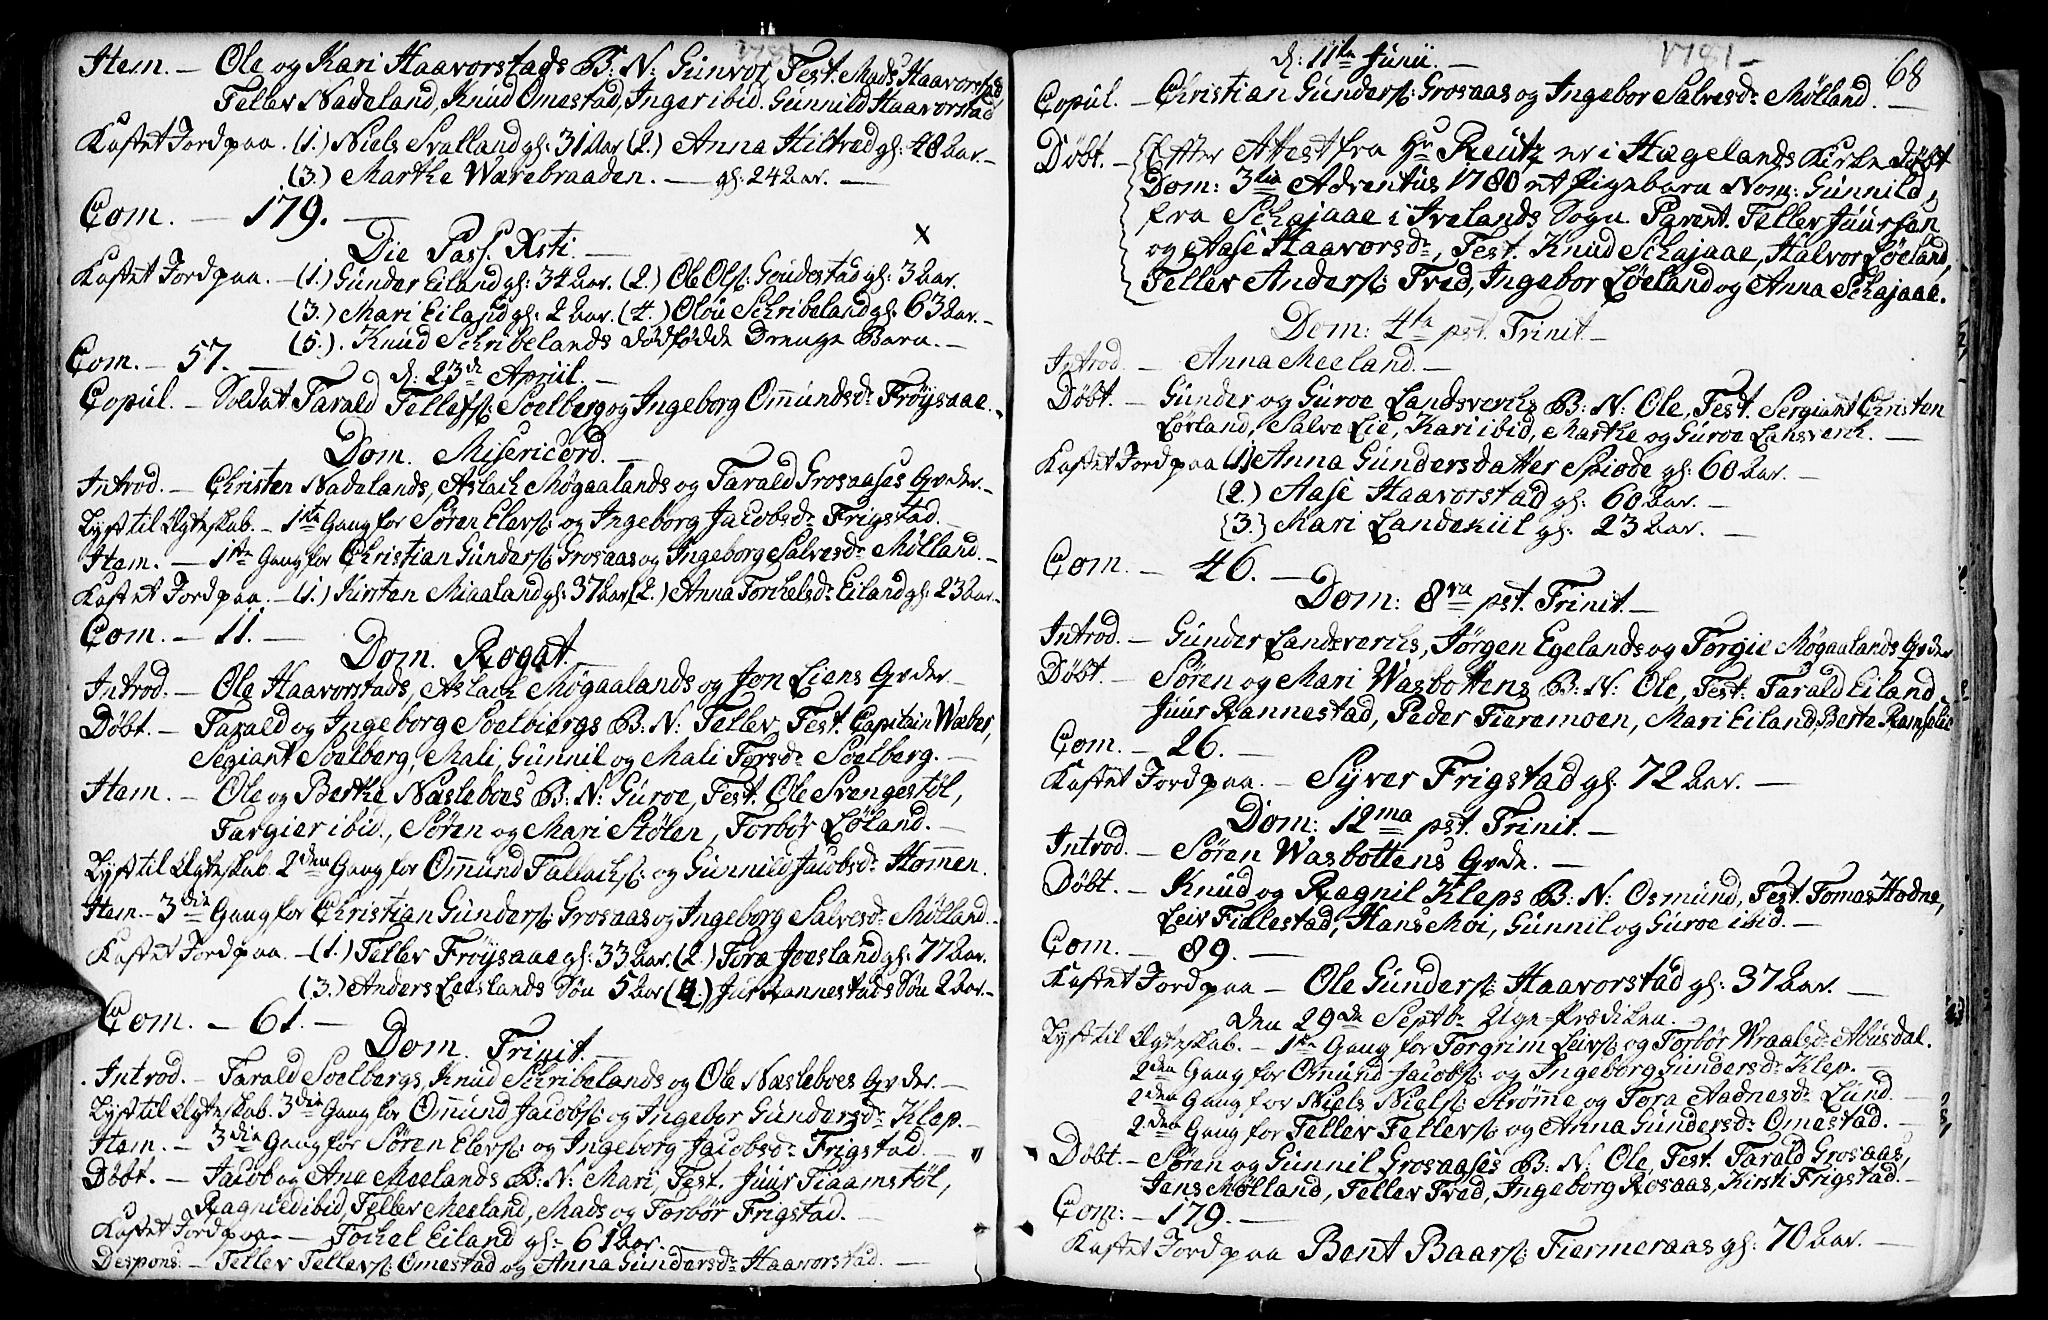 1781
Item. — Ole og Kari Haavorstads B: N: Gunvor, Test. Mads Haavorstad
Tellev Nadeland, Knud Omestad, Inger ibid. Gunnild Haavorstad
Kastet Jord paa. (1.) Niels Svalland gl: 31 Aar (2.) Anna Hiltrad gl: 48 Aar. —
(3.) Marthe Wærebraaden. — gl: 24 Aar. —
Com. — 179. —
Die Pass. Xsti. —
Kastet Jord paa. — (1.) Gunder Eiland gl: 34 Aar. (2.) Ole Ols: Goudestad gl: 3 Aar.
(3.) Mari Eiland gl: 2 Aar. (4.) Olou Schribeland gl: 63 Aar. —
(5.). Knud Schribelands dødfødde Drenge Barn. —
Com. — 57. —
d: 23de Apriil. —
Copul. — Soldat Tarald Tellefs: Soelberg og Ingeborg Omundsdr Frøysaae. —
Dom. Misericord. —
Introd. — Christen Nadelands, Aslach Møgaalands og Tarald Grosaases Qvder. —
Lyst til Ægteskab. — 1ste Gang for Søren Elevs: og Ingeborg Jacobsdr Frigstad. —
Item. — 1ste Gang for Christian Gunders: Grosaas og Ingeborg Salvesdr Mølland. —
Kastet Jord paa. — (1.) Kirsten Miaaland gl: 37 Aar, (2.) Anna Torchelsdr Eiland gl: 23 Aar. —
Com. — 11. —
Dom. Rogat. —
Introd. — Ole Haavorstads, Aslach Møgaalands og Jon Liens Qvder. —
Døbt. — Tarald og Ingeborg Soelbiergs B: N: Tellev, Test. Capitain Wæber,
Segiant Soelberg, Mali, Gunnil og Mali Torsdr Soelberg. —
Item. — Ole og Berthe Næsleboes B: N: Guroe, Test. Ole Svengestøl,
Targier ibid., Søren og Mari Stølen, Torbør Løland. —
Lyst til Ægteskab 2den Gang for Omund Tallachs: og Gunnild Jacobsdr Hommen.
Item. — 3die Gang for Christian Gunders: Grosaas og Ingeborg Salvesdr Mølland. —
Kastet Jord paa. — (1.) Tellev Frøysaae gl: 33 Aar. (2.) Tora Joesland gl: 77 Aar.
(3.) Anders Lauslands Søn 5 Aar (4.) Jur Rannestads Søn 2 Aar. —
Com. — 61. —
Dom. Trinit. —
Introd. — Tarald Soelbergs, Knud Schribelands og Ole Næsleboes Qvder. —
Lyst til Ægteskab. 3die Gang for Omund Jacobs: og Ingebor Gundersdr Klep. —
Item. — 3die Gang for Søren Elevs: og Ingeborg Jacobsdr Frigstad. —
Døbt. — Jacob og Ane Meelands B: N: Mari, Test. Juur Tiaamstøl,
Ragnild ibid, Tellev Meeland, Mads og Torbør Frigstad. —
Kastet Jord paa — Tochel Eiland gl: 61 Aar. —
Despons: — Tellev Tellevs: Omestad og Anna Gundersdr Haavorstad. —
1781 —
68
d: 11te Junii. —
Copul. — Christian Gunders: Grosaas og Ingebor Salvesdr Mølland. —
Døbt. — Efter Attest fra Hr Reutz er i Hægelands Kirke døbt
Dom: 3tia Adventus 1780 et Pigebarn Nom: Gunnild,
fra Schajaae i Ivelands Sogn. Parent. Tellev Juursøn
og Aase Haavorsdr, Test. Knud Schajaae, Halvor Løeland,
Tellev Anders: Tved, Ingebor Løeland og Anna Schajaae.
Dom: 4ta pst. Trinit. —
Introd. — Anna Meeland. —
Døbt. — Gunder og Guroe Landsverchs B: N: Ole, Test. Sergiant Christen
Løvland, Salve Lie, Kari ibid, Marthe og Guroe Lansverch. —
Kastet Jord paa (1) Anna Gundersdatter Spiode gl: 60 Aar. —
(2.) Aase Haavorstad gl: 60 Aar. —
(3.) Mari Landekiil gl: 23 Aar. —
Com. — 46. —
Dom: 8va pst. Trinit. —
Introd. — Gunder Landsverchs, Jørgen Egelands og Torgie Møgaalands Qvder
Døbt. — Søren og Mari Wasbottens B: N: Ole, Test: Tarald Eiland,
Juur Rannestad, Peder Tieremoen, Mari Eiland, Berte Ramselie
Com. — 26. —
Kastet Jord paa. — Syver Frigstad gl: 72 Aar. —
Dom: 12ma pst. Trinit. —
Introd. — Søren Wasbottens Qvde. —
Døbt. — Knud og Ragnil Kleps B: N: Osmund, Test. Tomas Hodne,
Leiv Fiallestad, Hans Moi, Gunnil og Guroe ibid. —
Com. — 89. —
Kastet Jord paa — Ole Gunders: Haavorstad gl: 37 Aar. —
Den 29de Septbr Uge-Prædiken. —
Lyst til Ægteskab. — 1ste Gang for Torgrim Leivs: og Torbør Wraalsdr Abusdal.
2den Gang for Omund Jacobs: og Ingeborg Gundersdr Klep. —
2den Gang for Niels Niels: Strømme og Tora Aadnesdr Lund. —
2den Gang for Tellev Tellevs: og Anna Gundersdr Omestad. —
Døbt. — Søren og Gunnil Grosaases B: N: Ole, Test. Tarald Grosaas,
Jens Mølland, Tellev Tved, Ingeborg Rosaas, Kirsti Frigstad. —
Com: — 179. —
Kastet Jord paa Bent Baars: Tiermeraas gl: 70 Aar. —